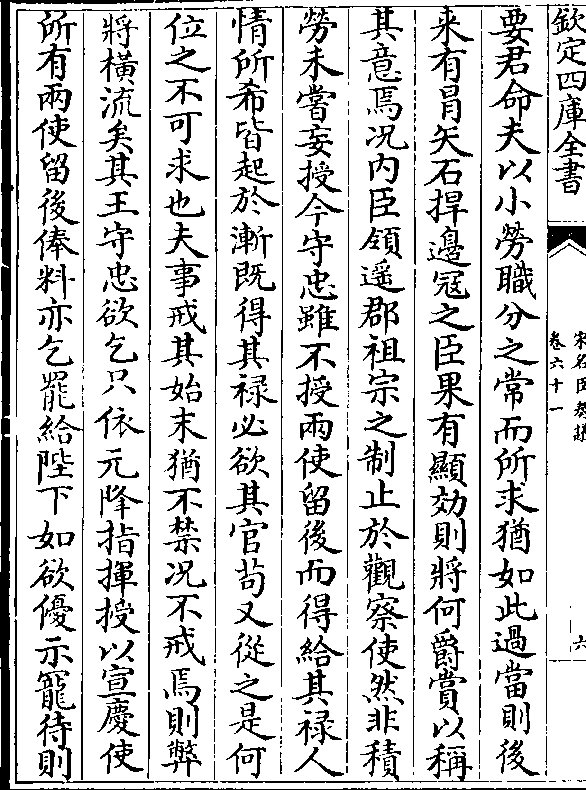 欽定四庫全書
宋名臣奏議
卷六十一
六
要君命夫以小勞職分之常而所求猶如此過當則後
来有冒矢石捍邊冦之臣果有顯効則將何爵賞以稱
其意焉况内臣領遥郡祖宗之制止於觀察使然非積
勞未嘗妄授今守忠雖不授兩使留後而得給其禄人
情所希皆起於漸既得其禄必欲其官苟又從之是何
位之不可求也夫事戒其始末猶不禁况不戒焉則弊
將横流矣其王守忠欲乞只依元降指揮授以宣慶使
所有兩使留後俸料亦乞罷給陛下如欲優示寵待則